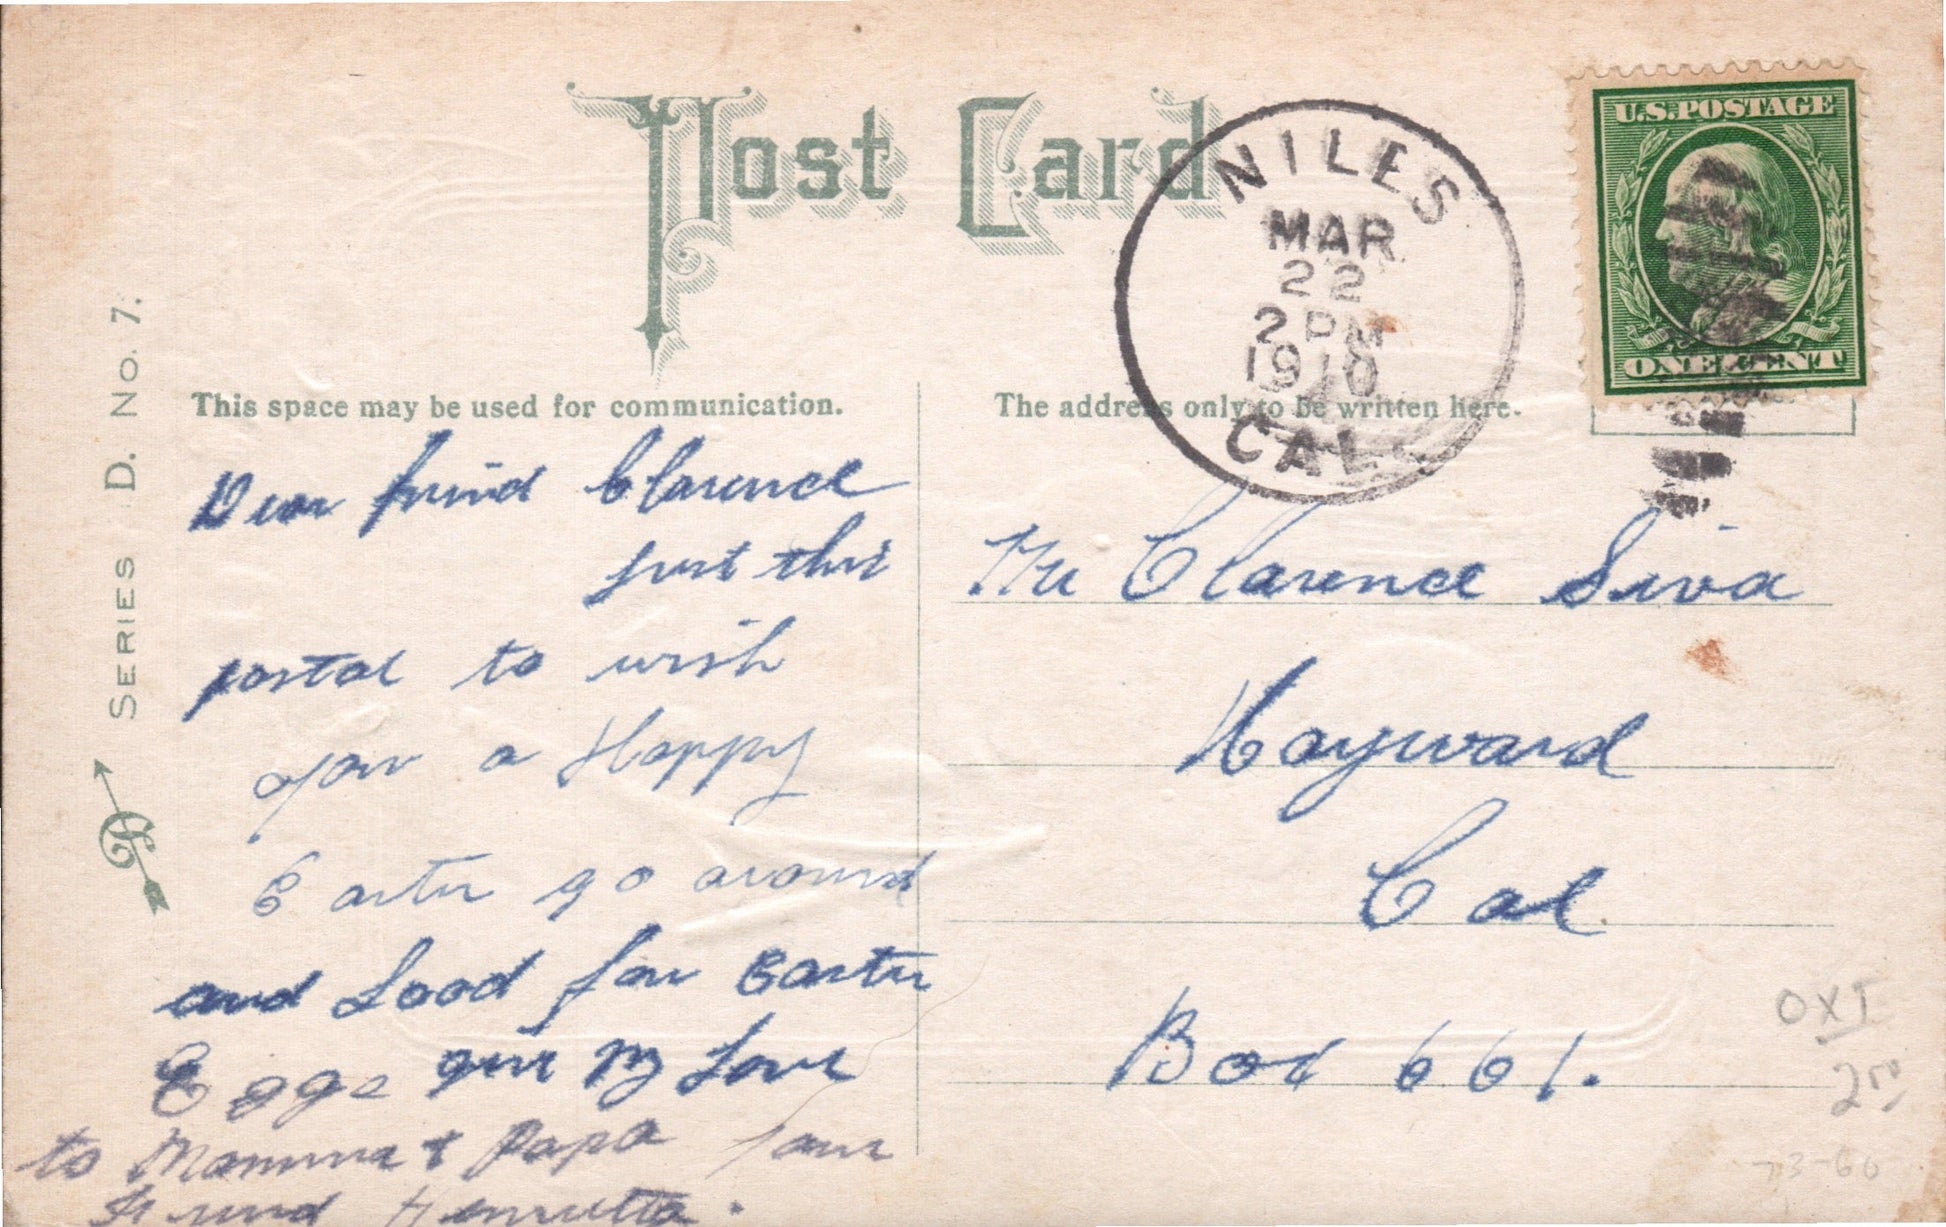 Post Card
NILES
MAR
22
2 PM
1910
CAL.
U.S. POSTAGE
ONE CENT
SERIES D. No. 7.
This space may be used for communication.
The address only to be written here.
Dear friend Clarence
Just this
postal to wish
you a Happy
Easter go around
and Lood for Easter
Eggs give my Love
to Mamma & Papa your
friend Henrietta.
Mr Clarence Silva
Hayward
Cal
Box 661.
OXT
2.00
73-60